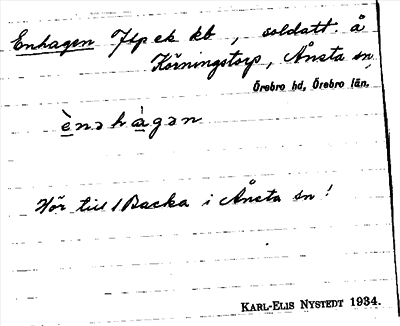 Enhagen Jfp ek kb, soldatt. å
Körningstorp, Ånsta sn
Örebro hd, Örebro län.
ènəhàgən
Hör till 1 Backa i Ånsta sn!
KARL-ELIS NYSTEDT 1934.